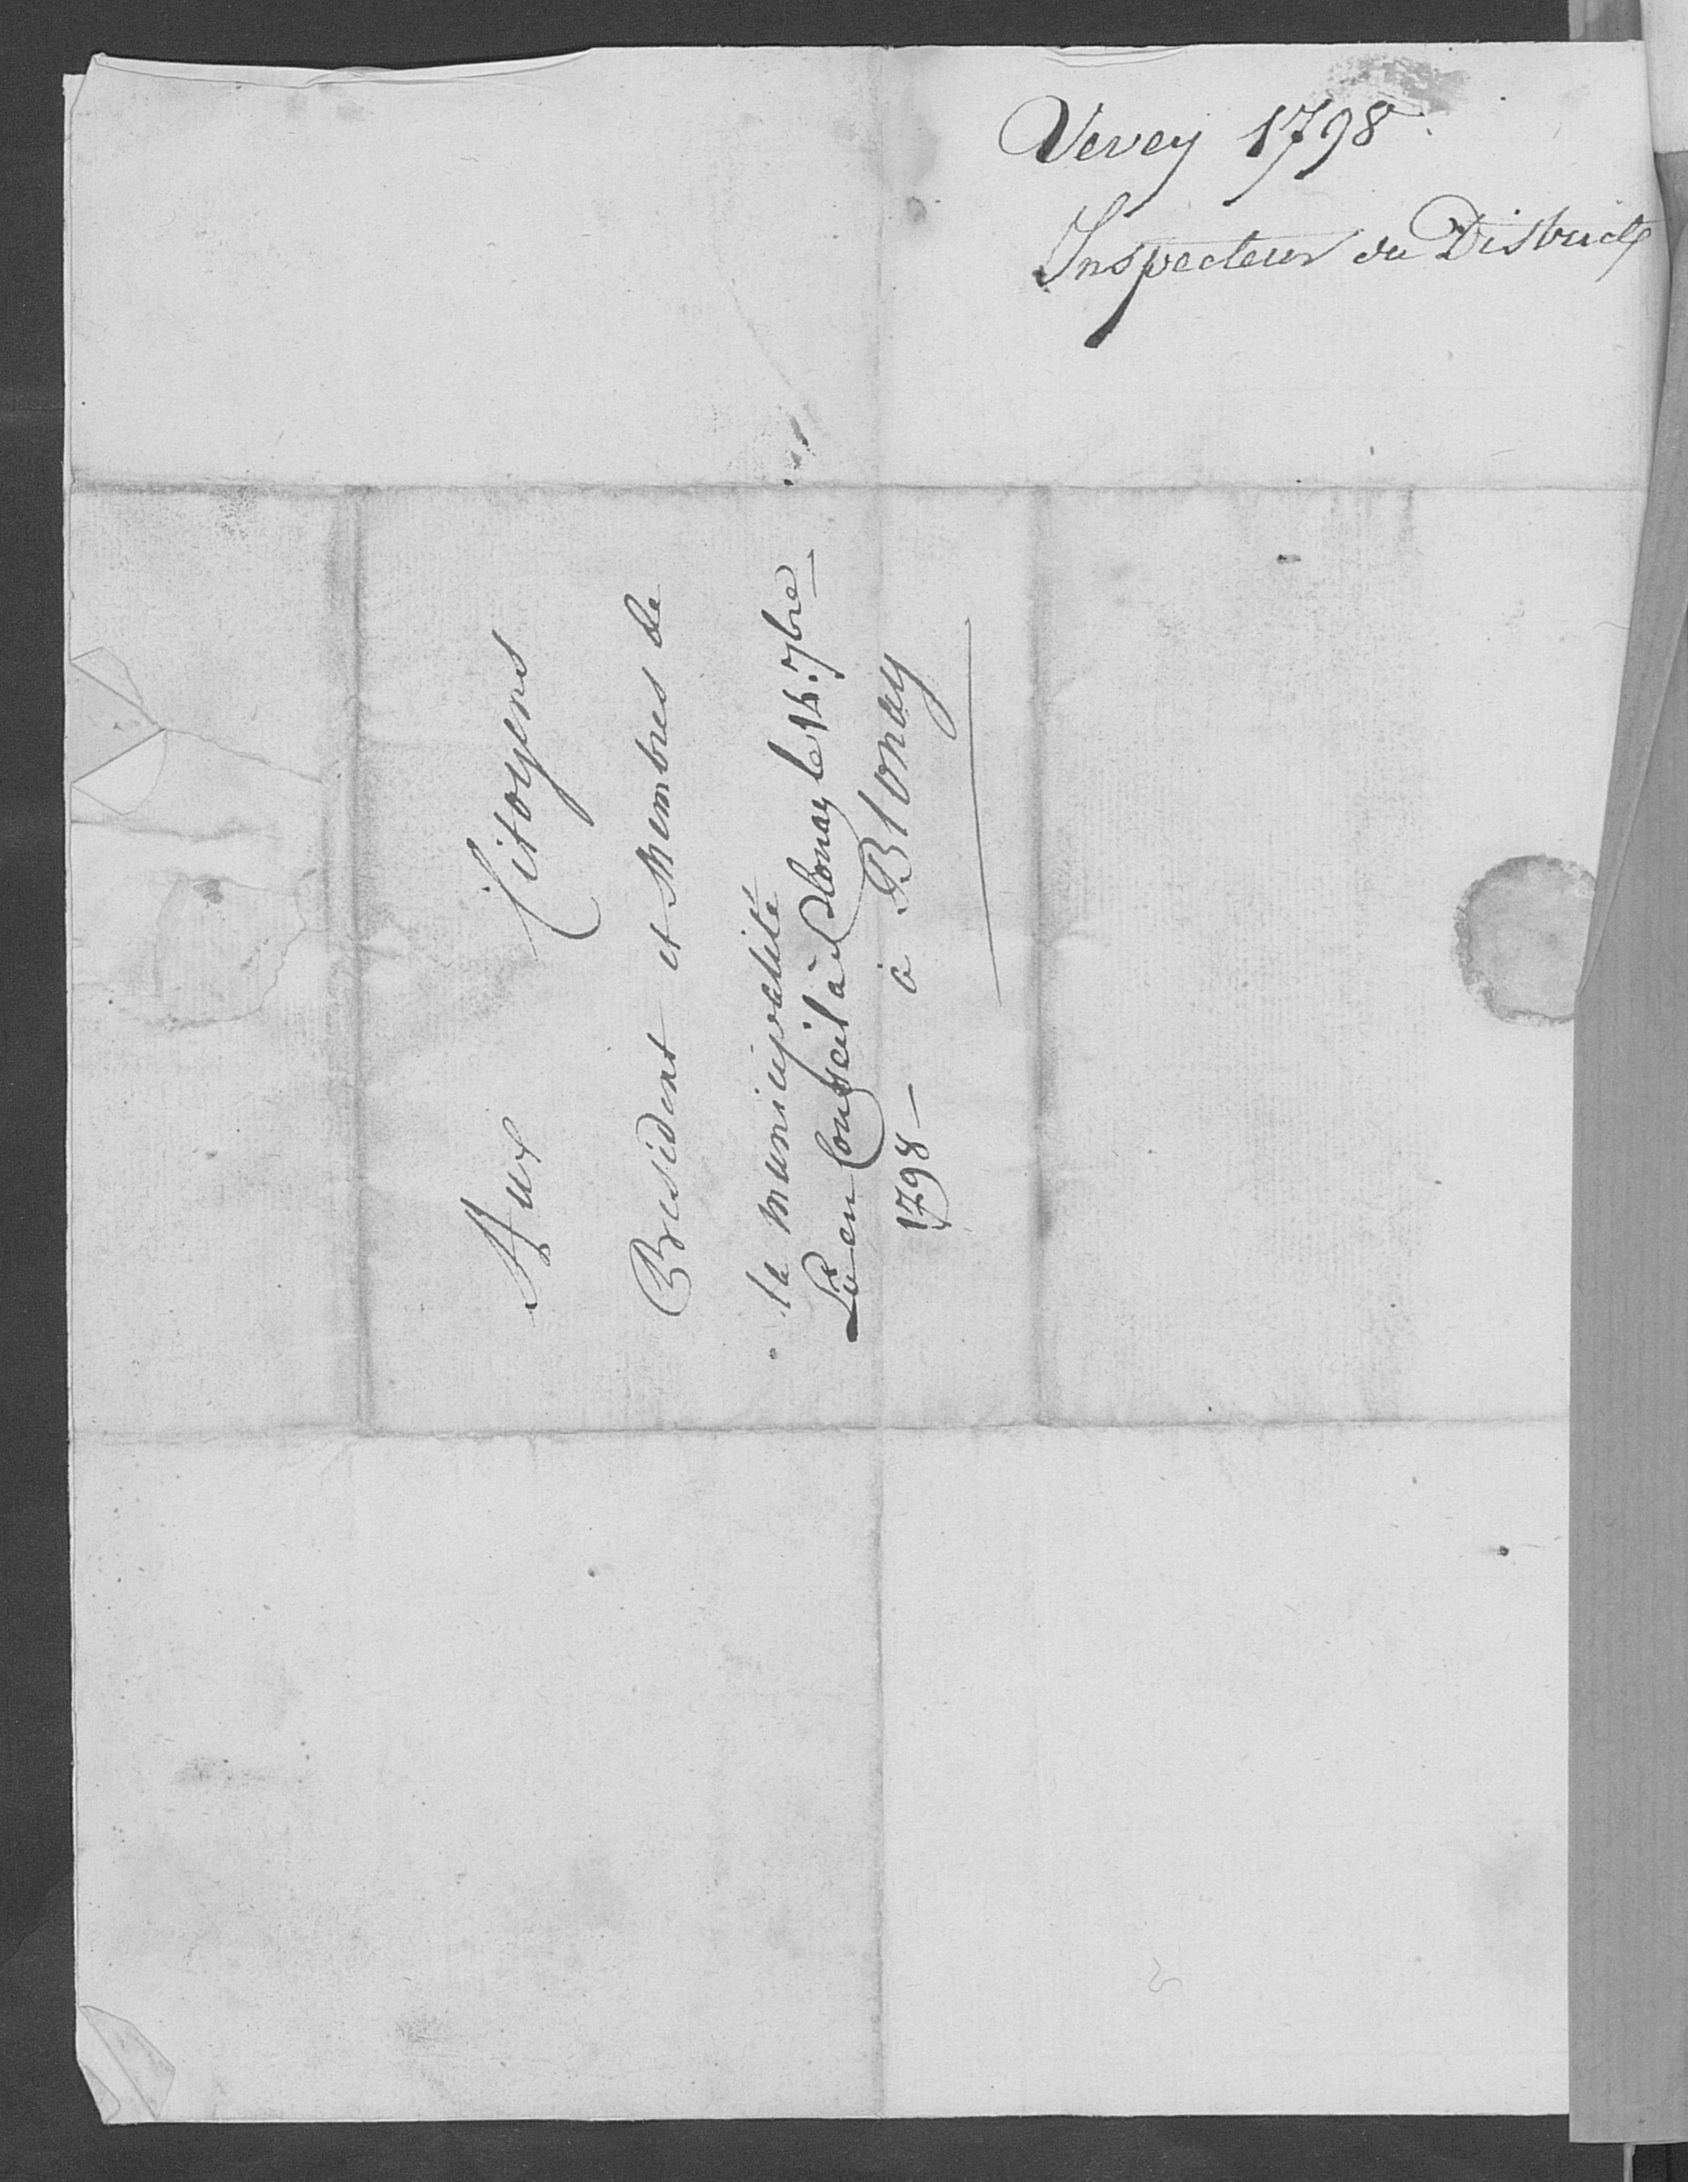 Vevey 1798.
Inspecteur du District
Aux Citoyens
President et Membres de
la municipalité
Lû en Conseil à Blonay le 14. 7bre
1798 —
à Blonay